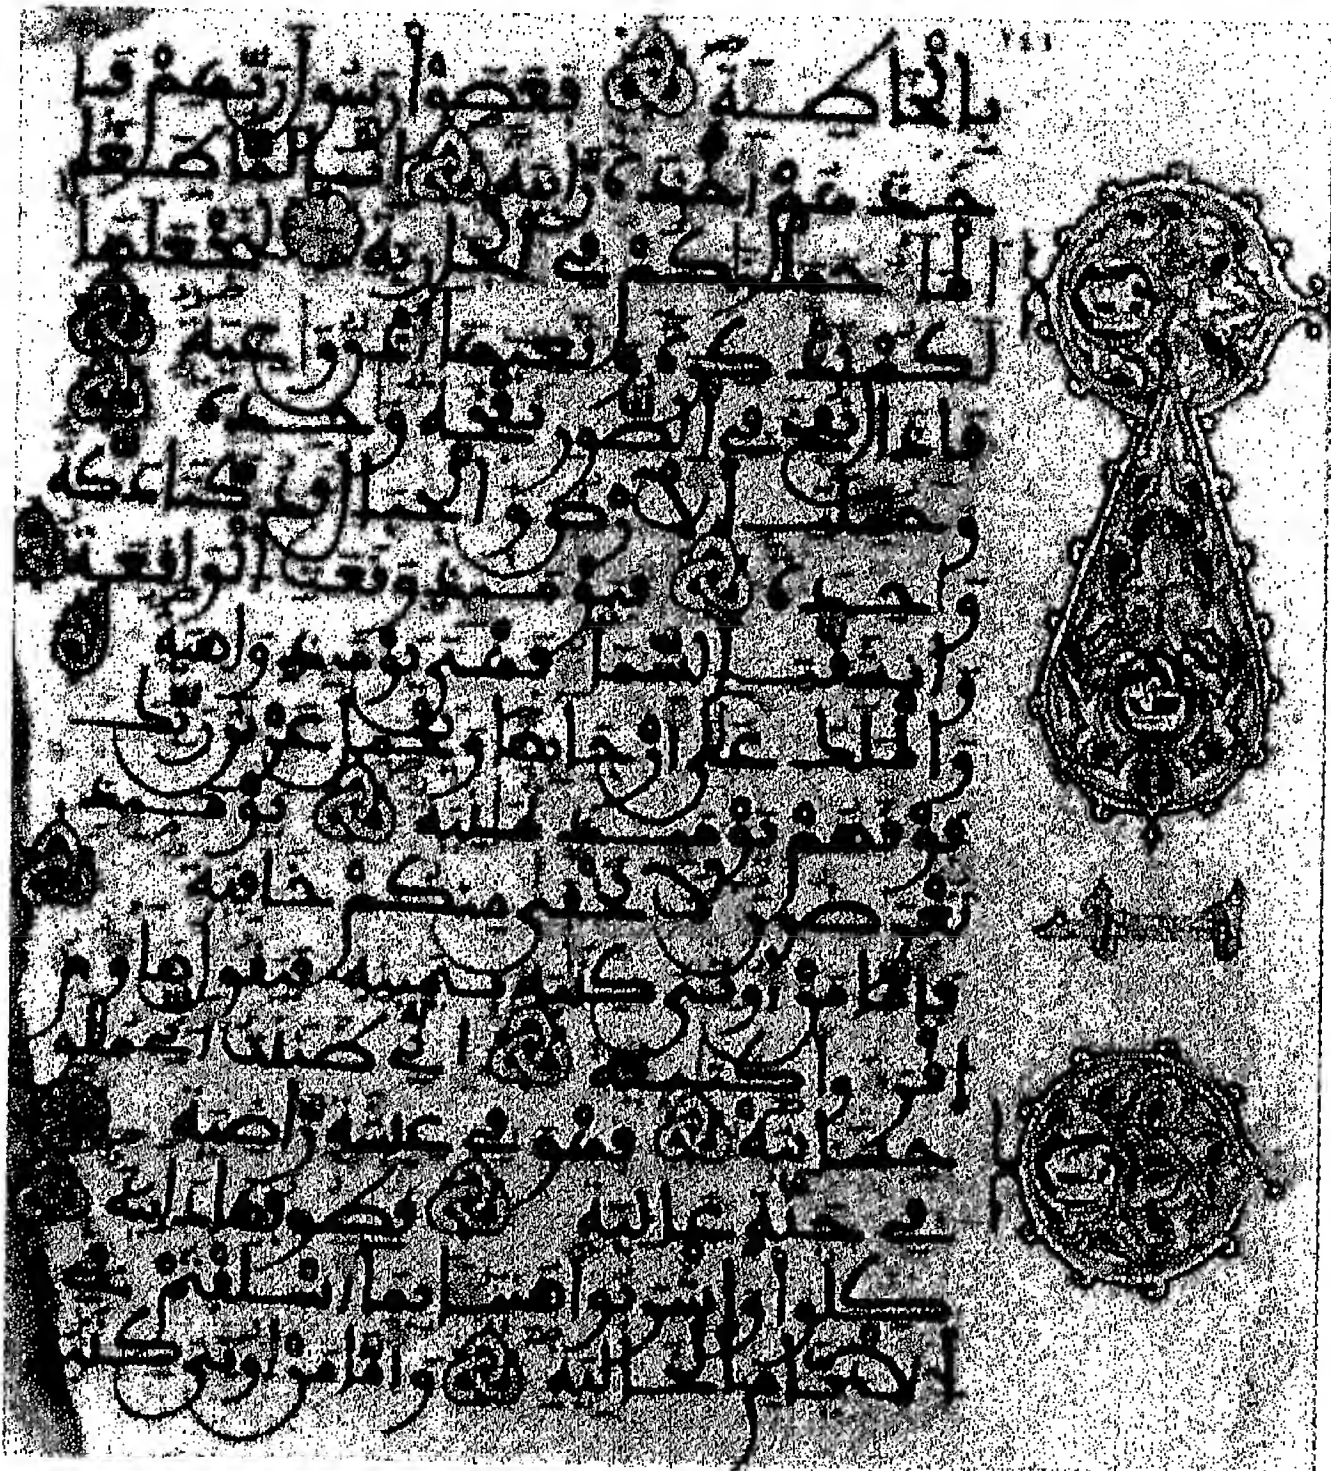 بالخاطئة فعصوا رسول ربهم فأ
خذهم أخذة رابية إنا لما طغا
الماء حملناكم في الجارية لنجعلها
لكم تذكرة وتعيها أذن واعية
فإذا نفخ في الصور نفخة واحدة
وحملت الأرض والجبال فدكتا دكة
واحدة فيومئذ وقعت الواقعة
وانشقت السماء فهي يومئذ واهية
والملك على أرجائها ويحمل عرش ربك
فوقهم يومئذ ثمنية يومئذ
تعرضون لا تخفى منكم خافية
فأما من أوتي كتبه بيمينه فيقول هاؤم
اقرءوا كتبيه إني ظننت أني ملق
حسابيه فهو في عيشة راضية
في جنة عالية قطوفها دانية
كلوا واشربوا هنيئا بما أسلفتم في
الأيام الخالية وأما من أوتي كتبه